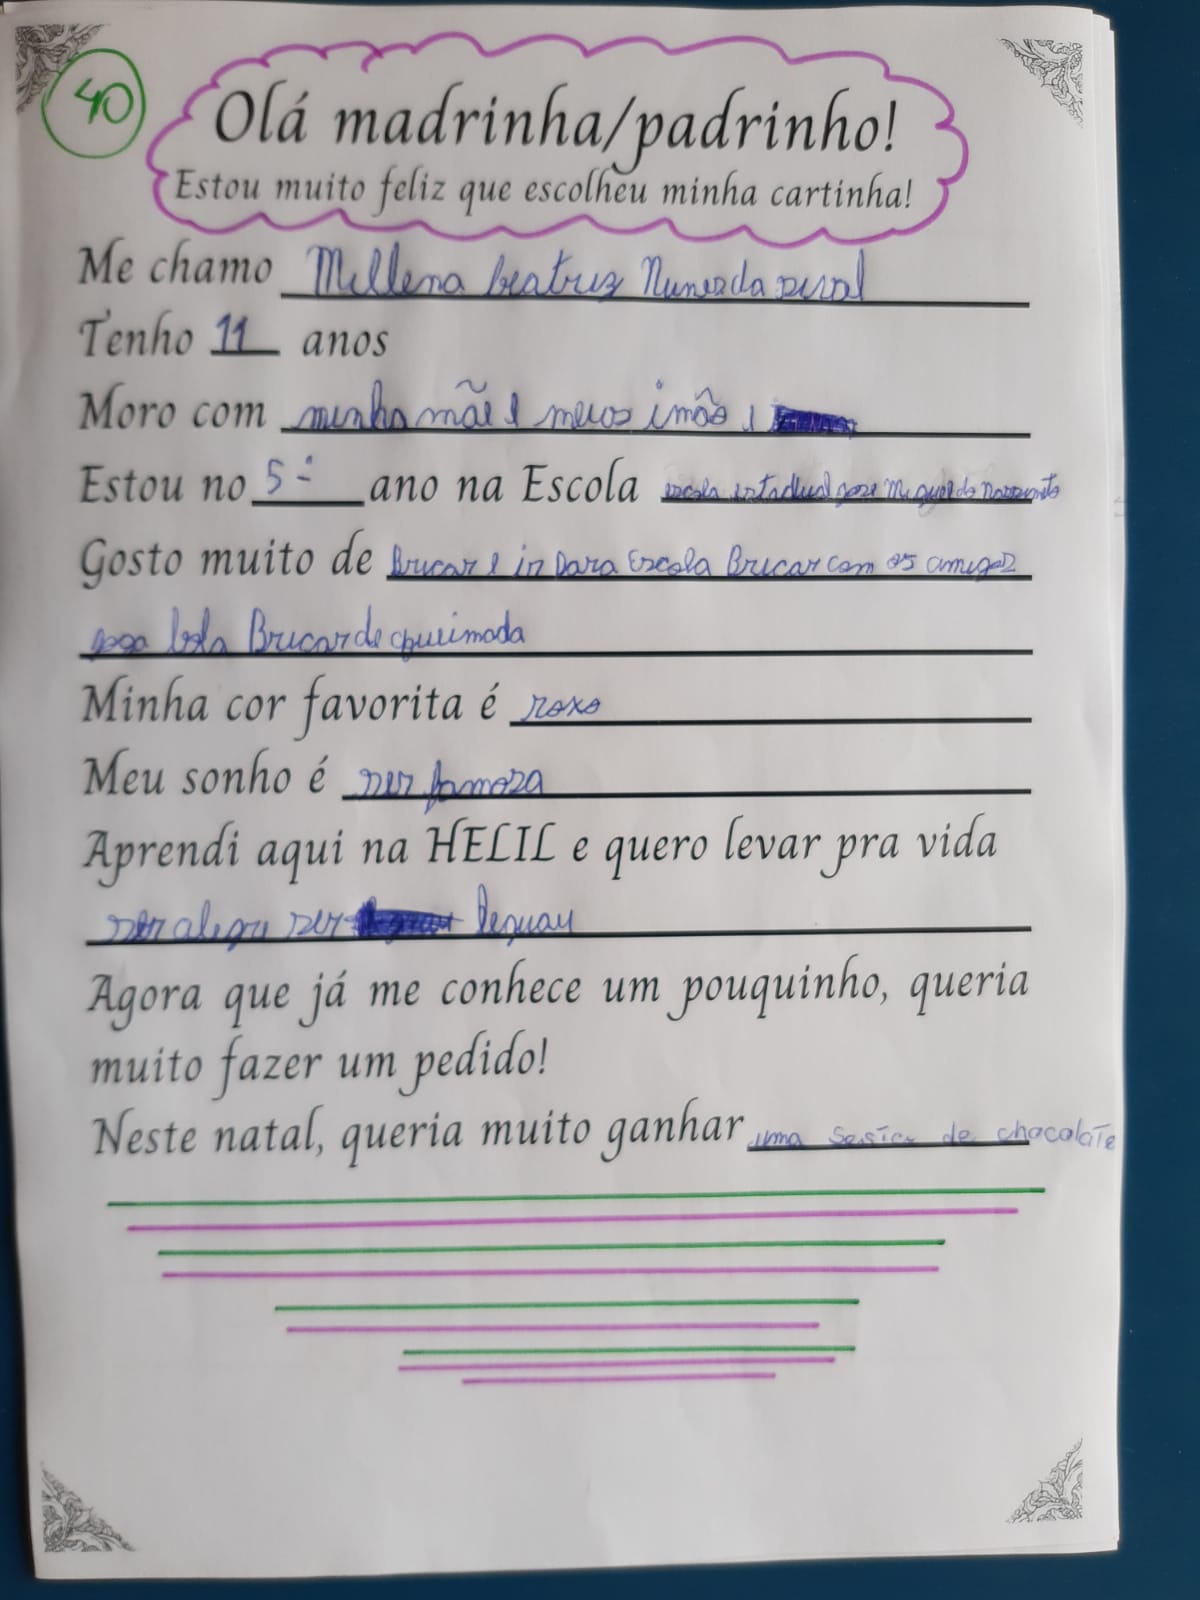 40
Olá madrinha/padrinho!
Estou muito feliz que escolheu minha cartinha!
Me chamo Mellena beatriz Nunes da
Tenho 11 anos
Moro com minha mãe e meus imãos e
Estou no 5º ano na Escola escola estadual jose Miguel do
Gosto muito de Brucar e in para Escola Brucar com os amigos
joga bola Brucar de queimada
Minha cor favorita é roxo
Meu sonho é ser famoza
Aprendi aqui na HELIL e quero levar pra vida
ser alegre ser
Agora que já me conhece um pouquinho, queria
muito fazer um pedido!
Neste natal, queria muito ganhar uma sesta de chocolate